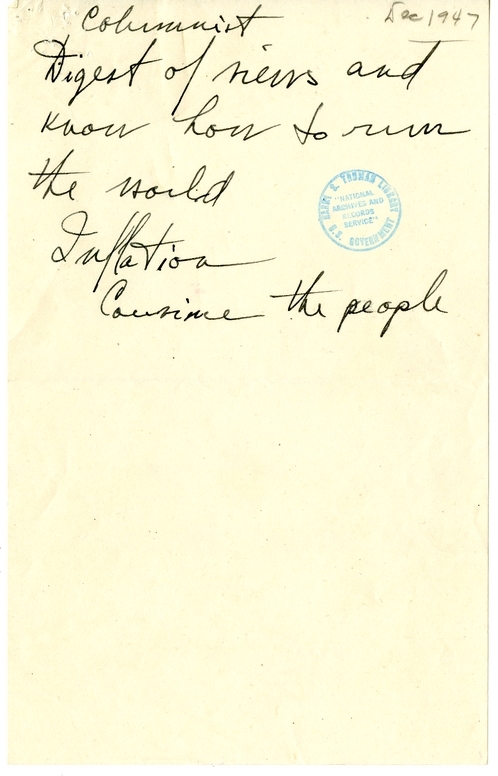 Dec 1947
Columnist
Digest of views and
know how to run
the world
HARRY S. TRUMAN LIBRARY
"NATIONAL
ARCHIVES AND
RECORDS
SERVICE"
U.S. GOVERNMENT
Inflation
the people